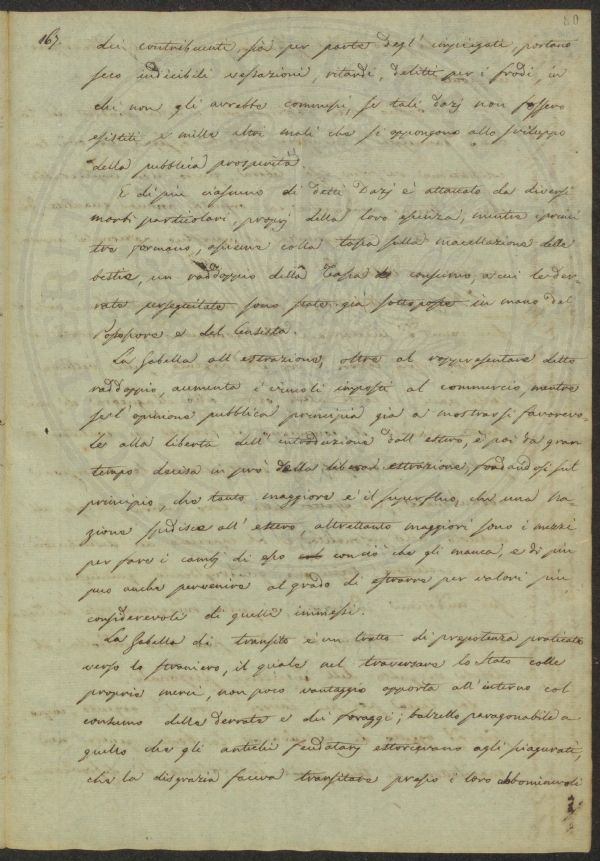 80
163.
dei contribuenti, sia per parte degl' impiegati, portano
seco indicibili vessazioni, ritardi, delitti per i frodi, in
cui non gli avrebbe commessi, se tali Dazj non fossero
esistiti e mille altri mali che si oppongono allo sviluppo
della pubblica prosperità.
E di più ciascuno di detti Dazj è attaccato da diversi
morbi particolari, proprj della loro essenza, mentre i primi
tre formano, assieme colla tassa sulla macellazione delle
bestie, un raddoppio della Tassa di consumo, a cui le der-
rate perseguitate sono state già sottoposte in mano del
Possessore e del Censista.
La Gabella all'estrazione, oltre al rappresentare detto
raddoppio, aumenta i vincoli imposti al commercio, mentre
se l'opinione pubblica principia già a mostrarsi favorevo-
le alla libertà dell'introduzione dall'estero, è poi da gran
tempo decisa in prò della libera estrazione, fondandosi sul
principio, che tanto maggiore è il superfluo, che una Na-
zione spedisce all'estero, altrettanto maggiori sono i mezzi
per fare i cambj di esso con ciò che gli manca, e di più
può anche pervenire al grado di estrarre per valori più
considerevoli di quelli immessi.
La Gabella di transito è un tratto di prepotenza praticato
verso lo straniero, il quale nel traversare lo Stato colle
proprie merci, non poco vantaggio apporta all'interno col
consumo delle derrate e dei foraggi; balzello paragonabile a
quello che gli antichi feudatarj estorcevano agli sciagurati,
che la disgrazia faceva transitare presso i loro abbominevoli